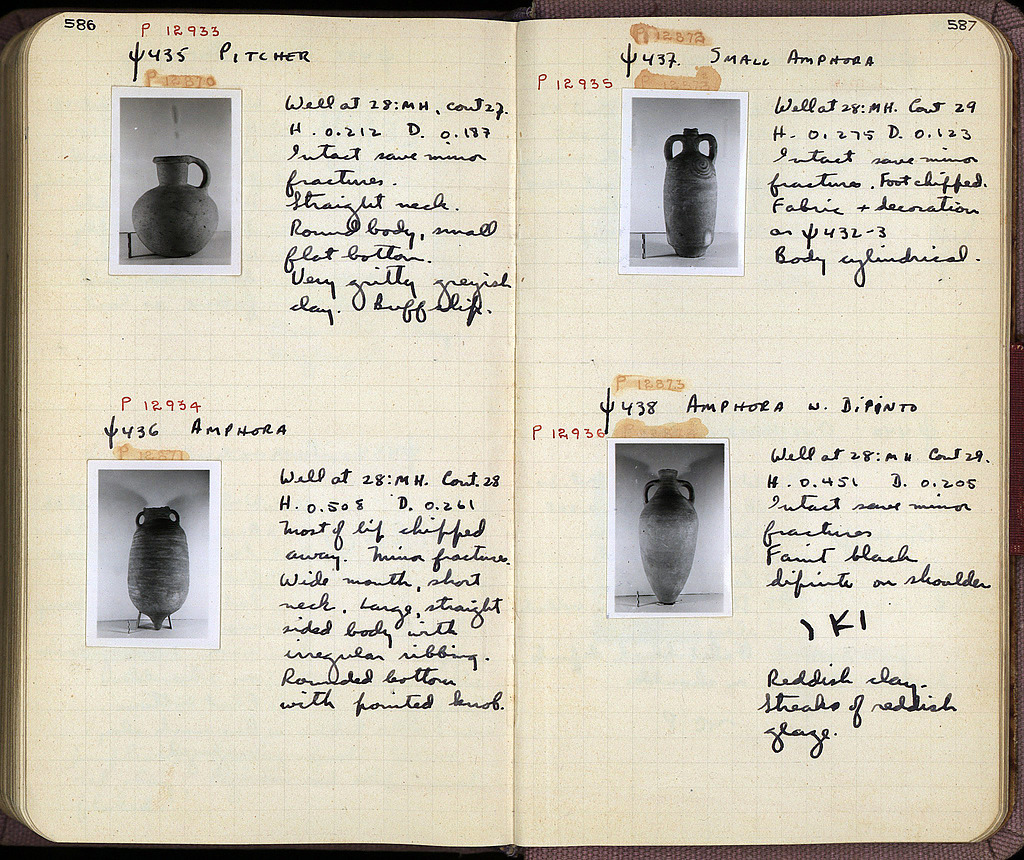 586
P 12933
ψ435 PITCHER
P 12870
Well at 28:MH, cont 27.
H. 0.212 D. 0.187
Intact save minor
fractures.
Straight neck.
Round body, small
flat bottom.
Very gritty greyish
clay. Buff slip.
P 12934
ψ436 AMPHORA
P 12871
Well at 28:MH. Cont. 28
H. 0.508 D. 0.261
Most of lip chipped
away. Minor fractures.
Wide mouth, short
neck. Large, straight
sided body with
irregular ribbing.
Rounded bottom
with pointed knob.
587
P 12872
ψ437. SMALL AMPHORA
P 12935
Well at 28:MH. Cont 29
H. 0.275 D. 0.123
Intact save minor
fractures. Foot chipped.
Fabric + decoration
as ψ432-3
Body cylindrical.
P 12873
ψ438 AMPHORA W. DIPINTO
P 12936
Well at 28:MH Cont 29.
H. 0.451 D. 0.205
Intact save minor
fractures
Faint black
dipinto on shoulder
ΚΙ
Reddish clay.
Streaks of reddish
glaze.